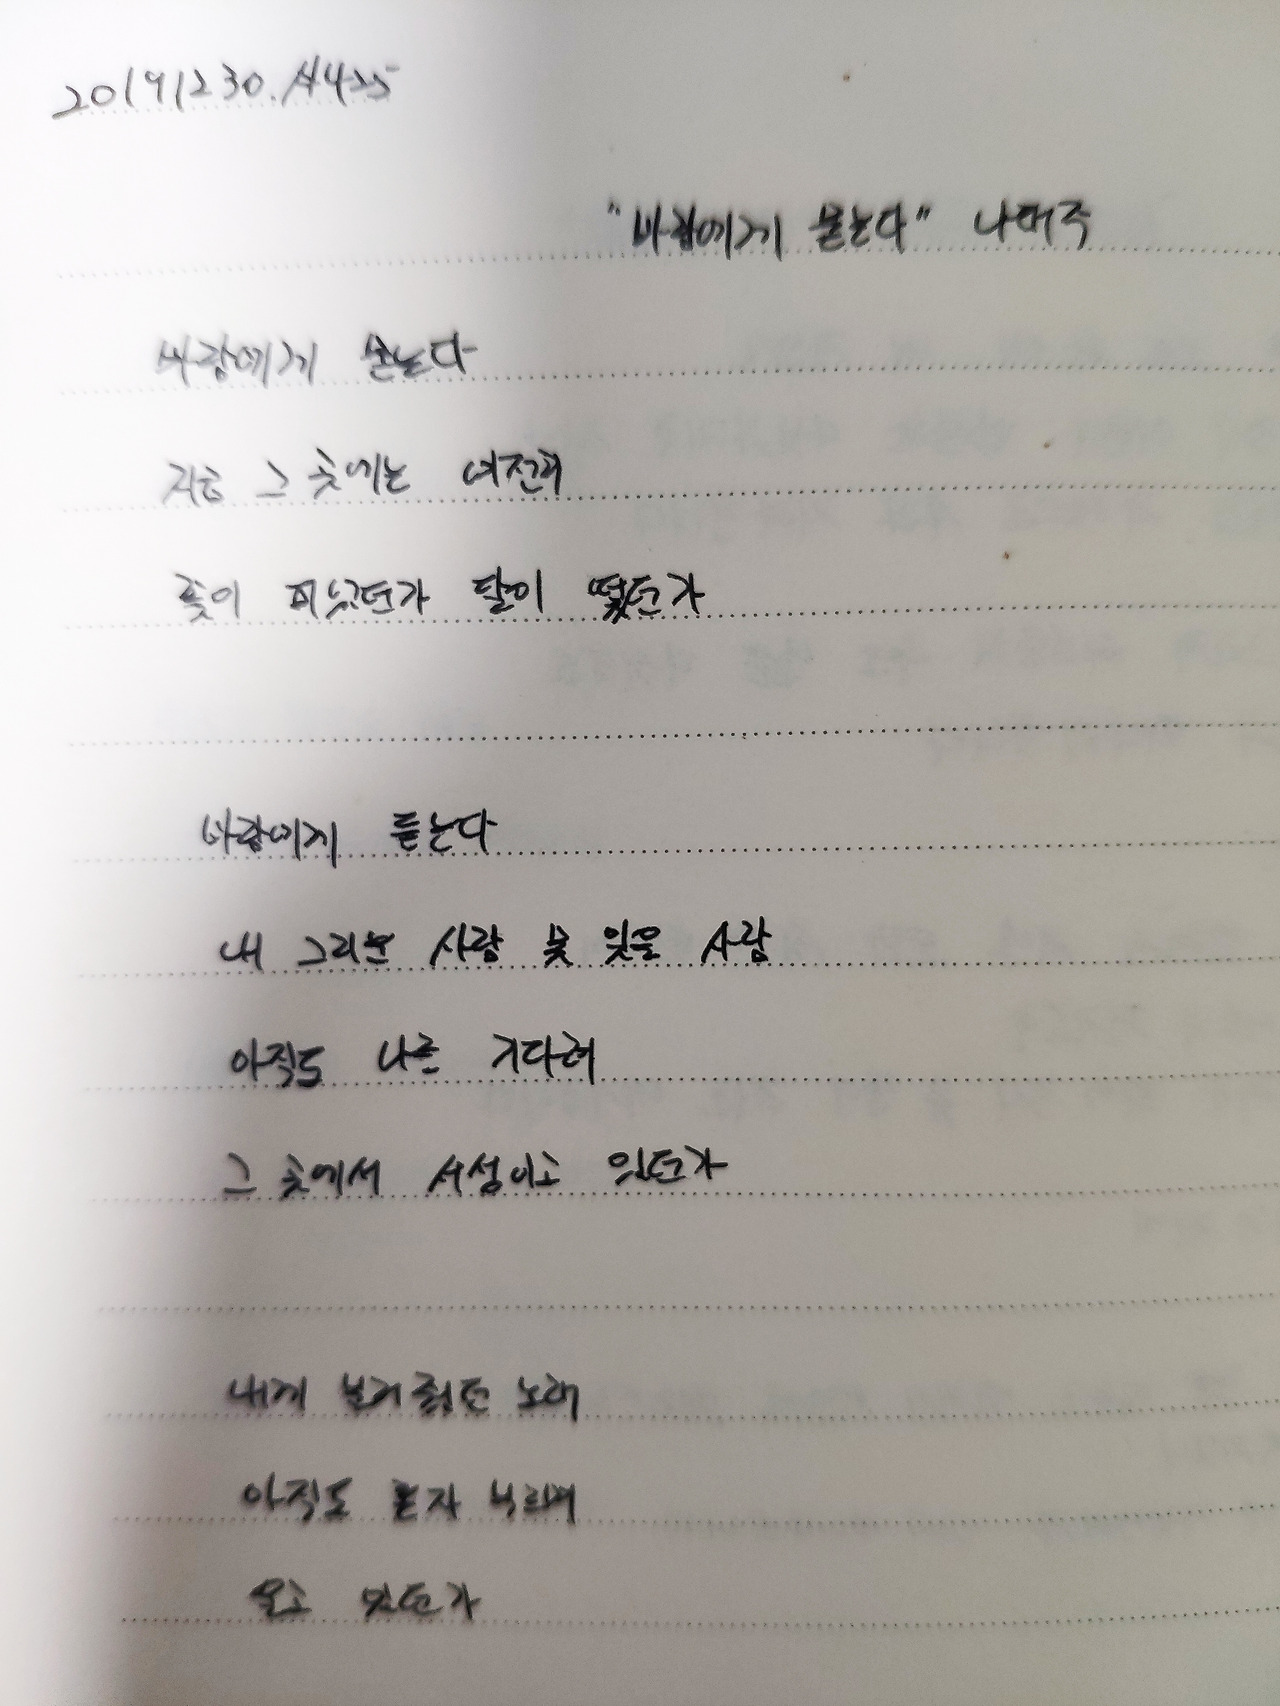 20191230. A425
"바람에게 묻는다" 나태주
바람에게 묻는다
지금 그 곳에는 여전히
꽃이 피었던가 달이 떴던가
바람에게 듣는다
내 그리운 사람 못 잊을 사람
아직도 나를 기다려
그 곳에서 서성이고 있던가
내게 불러줬던 노래
아직도 혼자 부르며
울고 있던가